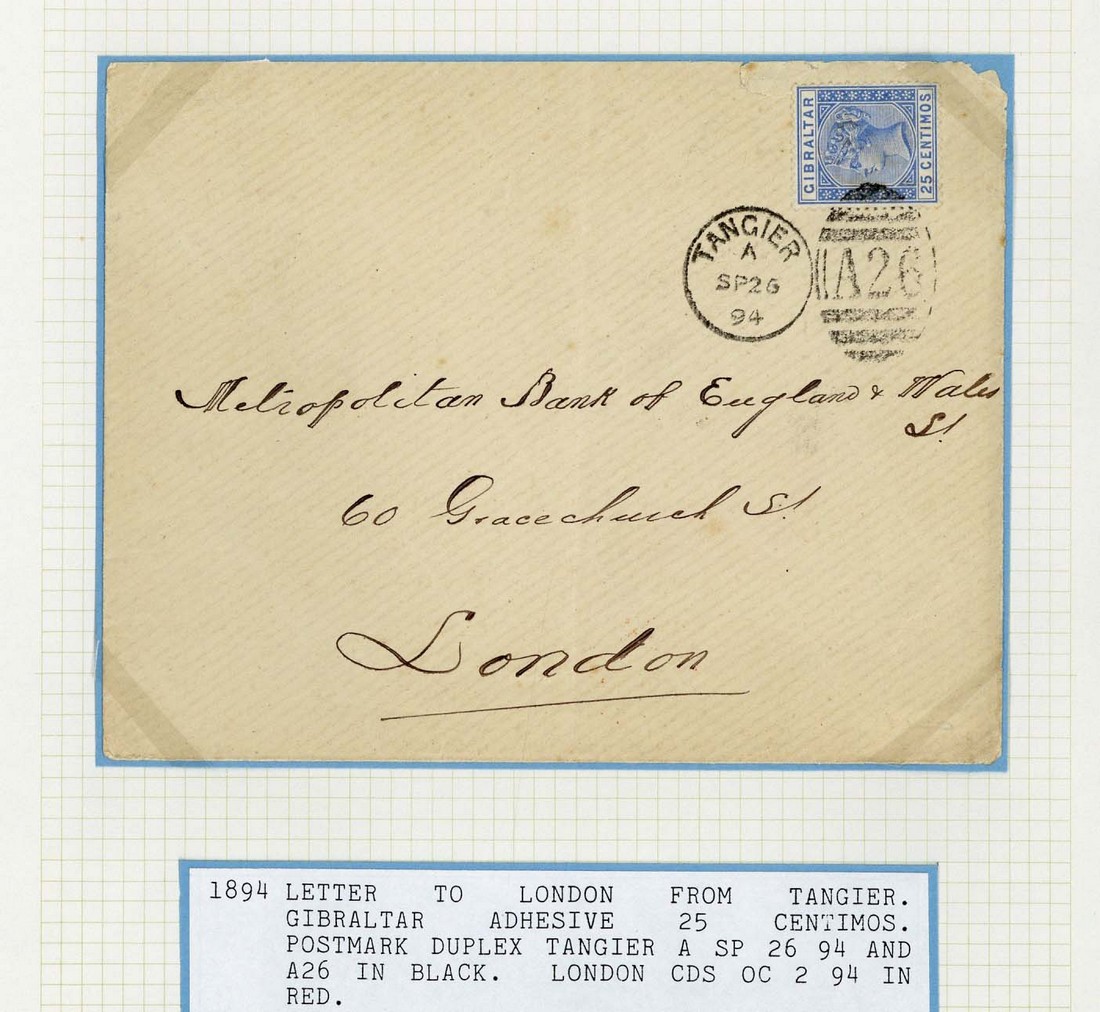 GIBRALTAR
25 CENTIMOS
TANGIER
A
SP26
94
A26
Metropolitan Bank of England & Wales
St
60 Gracechurch St
London
1894 LETTER TO LONDON FROM TANGIER.
GIBRALTAR ADHESIVE 25 CENTIMOS.
POSTMARK DUPLEX TANGIER A SP 26 94 AND
A26 IN BLACK. LONDON CDS OC 2 94 IN
RED.